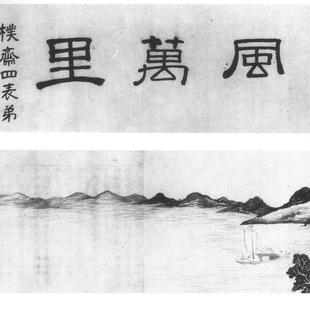 風萬里
樸齋四表弟